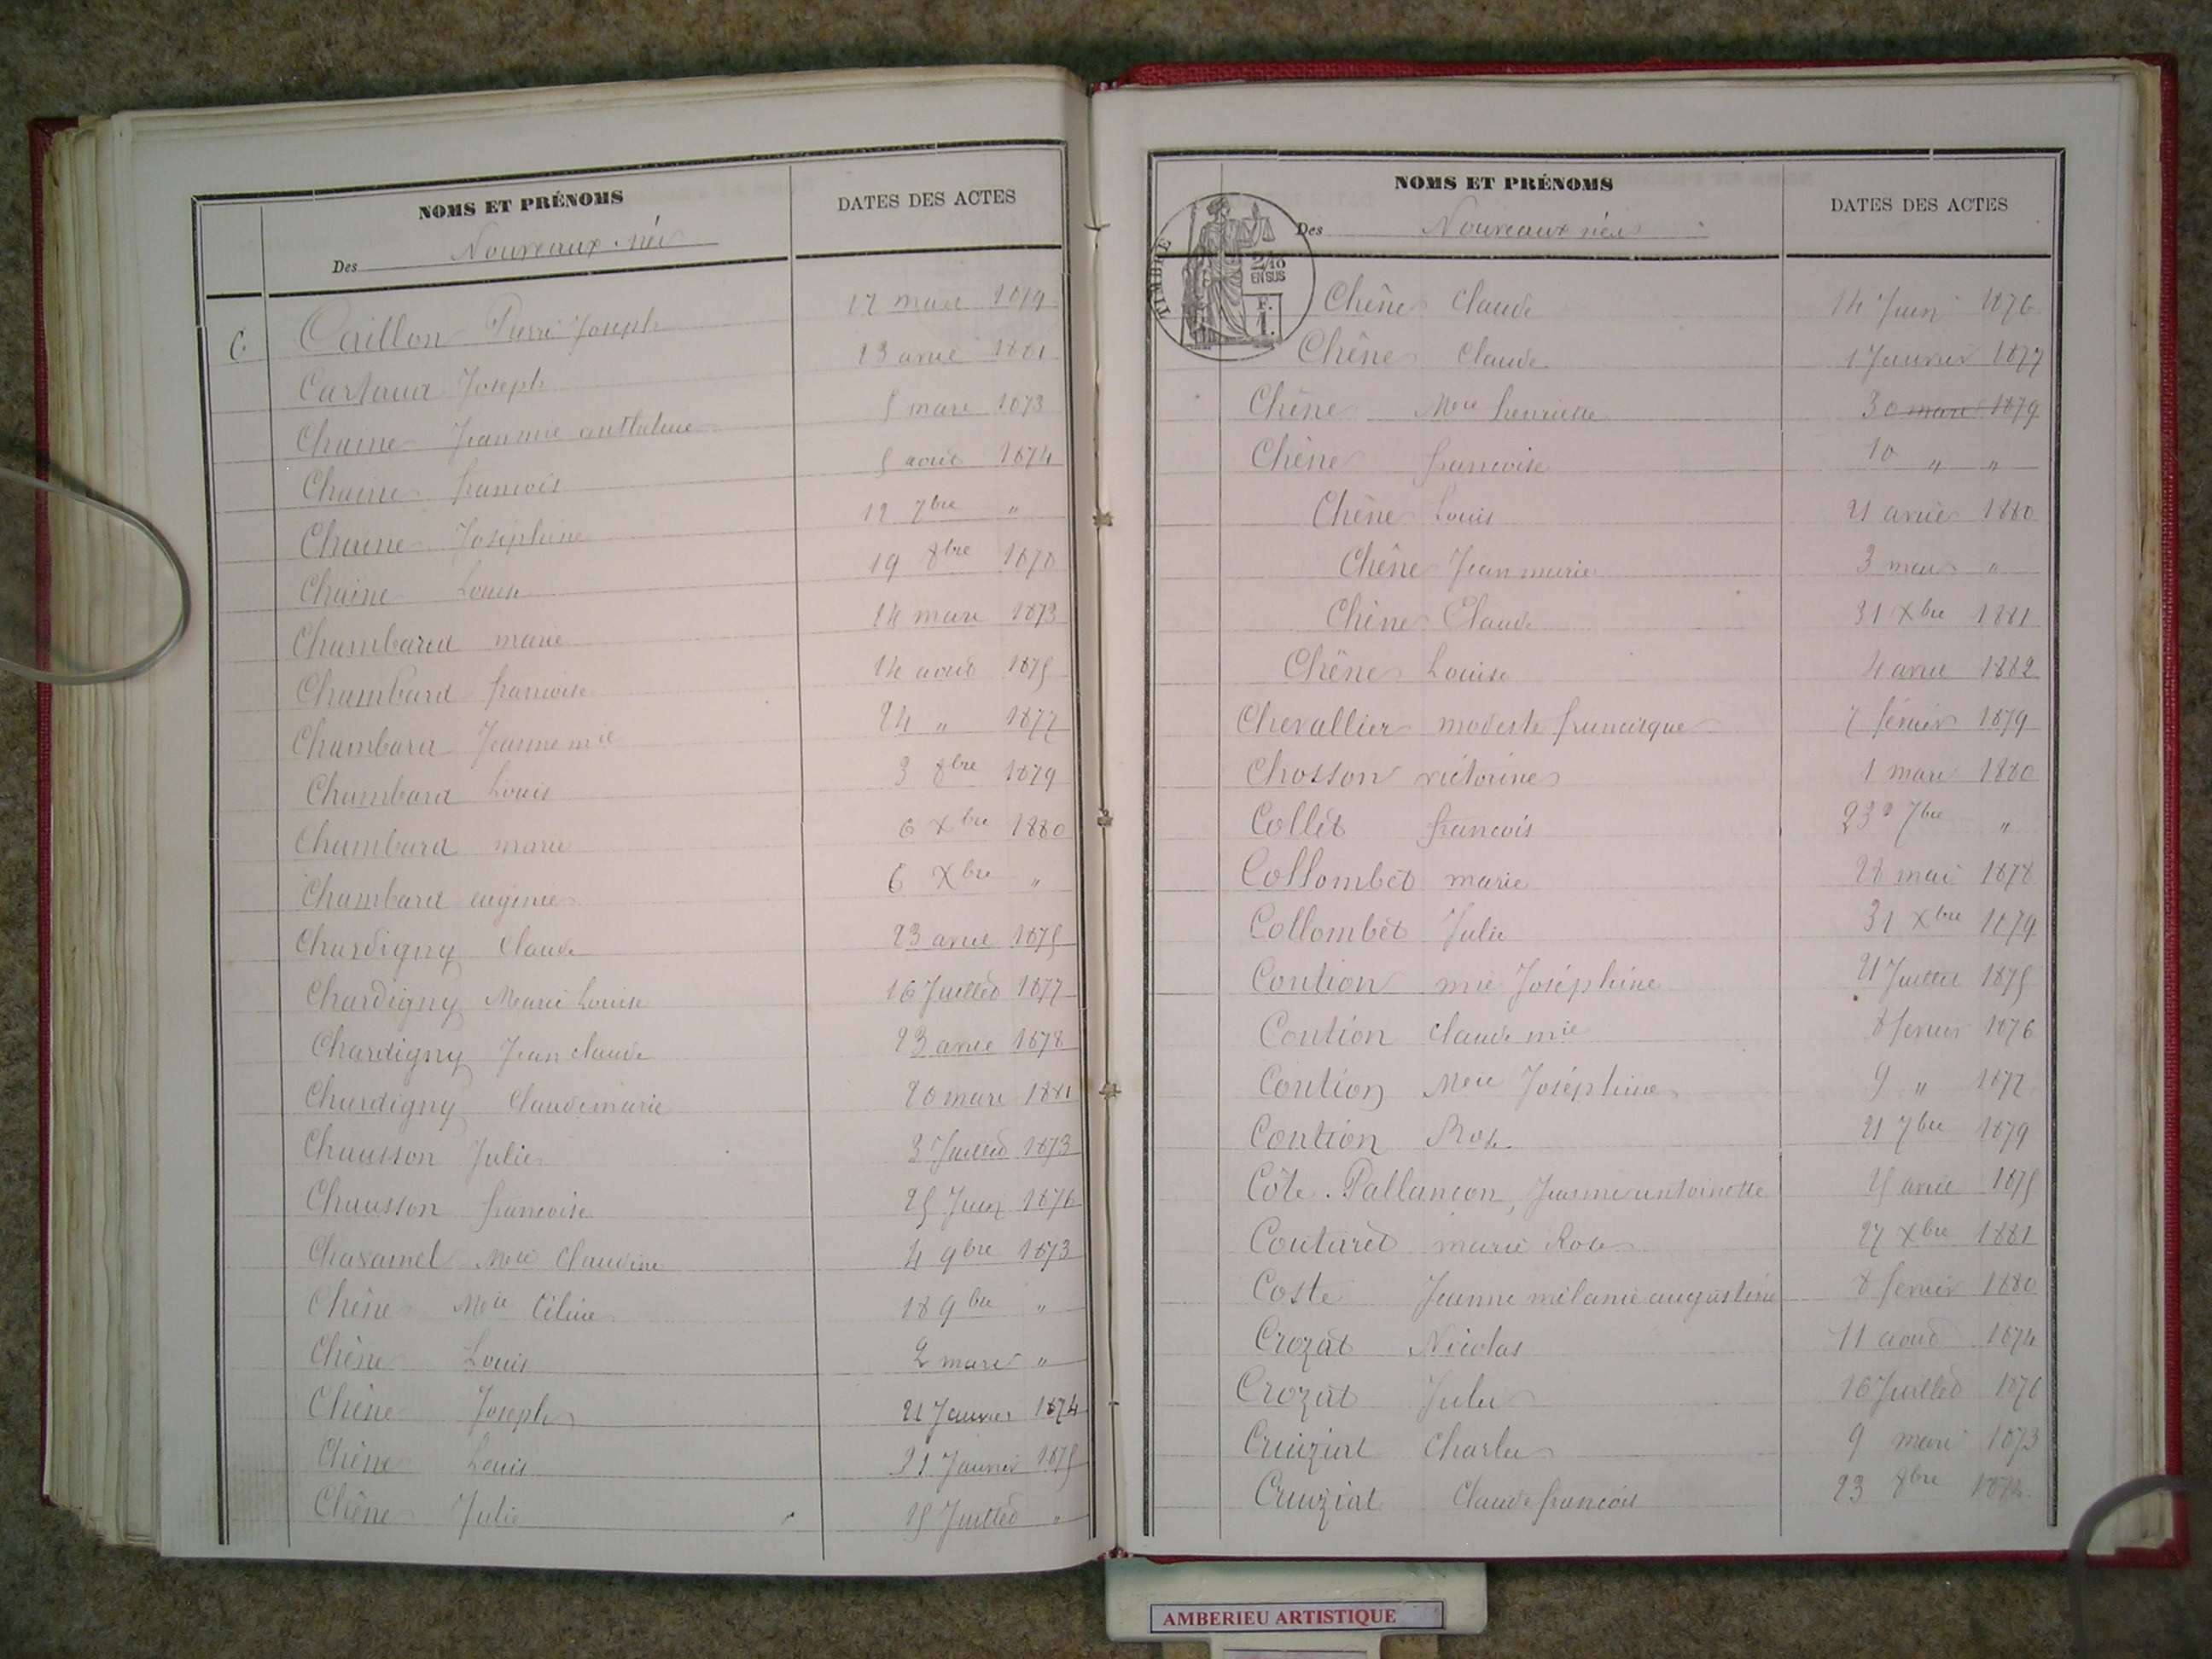 NOMS ET PRÉNOMS
Des Nouveaux-nés
DATES DES ACTES
C. Caillon Pierre Joseph 17 mars 1879
Cartaud Joseph 23 avril 1881
Chaine Jeanne 5 mars 1873
Chaine francois 5 août 1874
Chaine Joséphine 12 7bre "
Chaine Louise 19 8bre 1878
Chambard marie 24 mars 1873
Chambard francoise 14 août 1875
Chambard Jeanne mie 24 " 1877
Chambard Louis 3 8bre 1879
Chambard marie 6 Xbre 1880
Chambard eugénie 6 Xbre "
Chardigny Claude 23 avril 1875
Chardigny Marie Louise 16 Juillet 1877
Chardigny Jean claude 23 avril 1878
Chardigny Claude marie 20 mars 1881
Chausson Julie 3 Juillet 1873
Chausson francoise 25 Juin 1876
Chavamel Mrie Claudine 4 9bre 1873
Chêne Mrie Céline 18 9bre "
Chêne Louis 2 mars "
Chêne Joseph 21 Janvier 1874
Chêne Louis 21 Janvier 1875
Chêne Julie 15 Juillet "
NOMS ET PRÉNOMS
Des Nouveaux nés
DATES DES ACTES
TIMBRE
2/10
EN SUS
F.
1.
Chêne Claude 14 Juin 1876
Chêne Claude 1 Janvier 1877
Chêne Mrie henriette 30 mars 1879
Chêne francoise 10 " "
Chêne Louis 21 avril 1880
Chêne Jean marie 3 mars "
Chêne Claude 31 Xbre 1881
Chêne Louise 4 avril 1882
Chevallier modeste francisque 7 février 1879
Chosson victorine 1 mars 1880
Collet francois 23 7bre "
Collombet marie 28 mai 1878
Collombet Julie 31 Xbre 1879
Contion mie Joséphine 21 Juillet 1875
Contion Claude mie 8 fevrier 1876
Contion Mrie Joséphine 9 " 1877
Contion Rose 21 7bre 1879
Côte. Pallancon, Jeanne antoinette 25 avril 1875
Couturet marie Rose 27 Xbre 1881
Coste Jeanne mélanie augustine 8 fevrier 1880
Crozat Nicolas 11 aout 1874
Crozat Jules 16 Juillet 1876
Cruiziat Charles 9 mars 1873
Cruiziat Claude francois 23 8bre 1874
AMBERIEU ARTISTIQUE